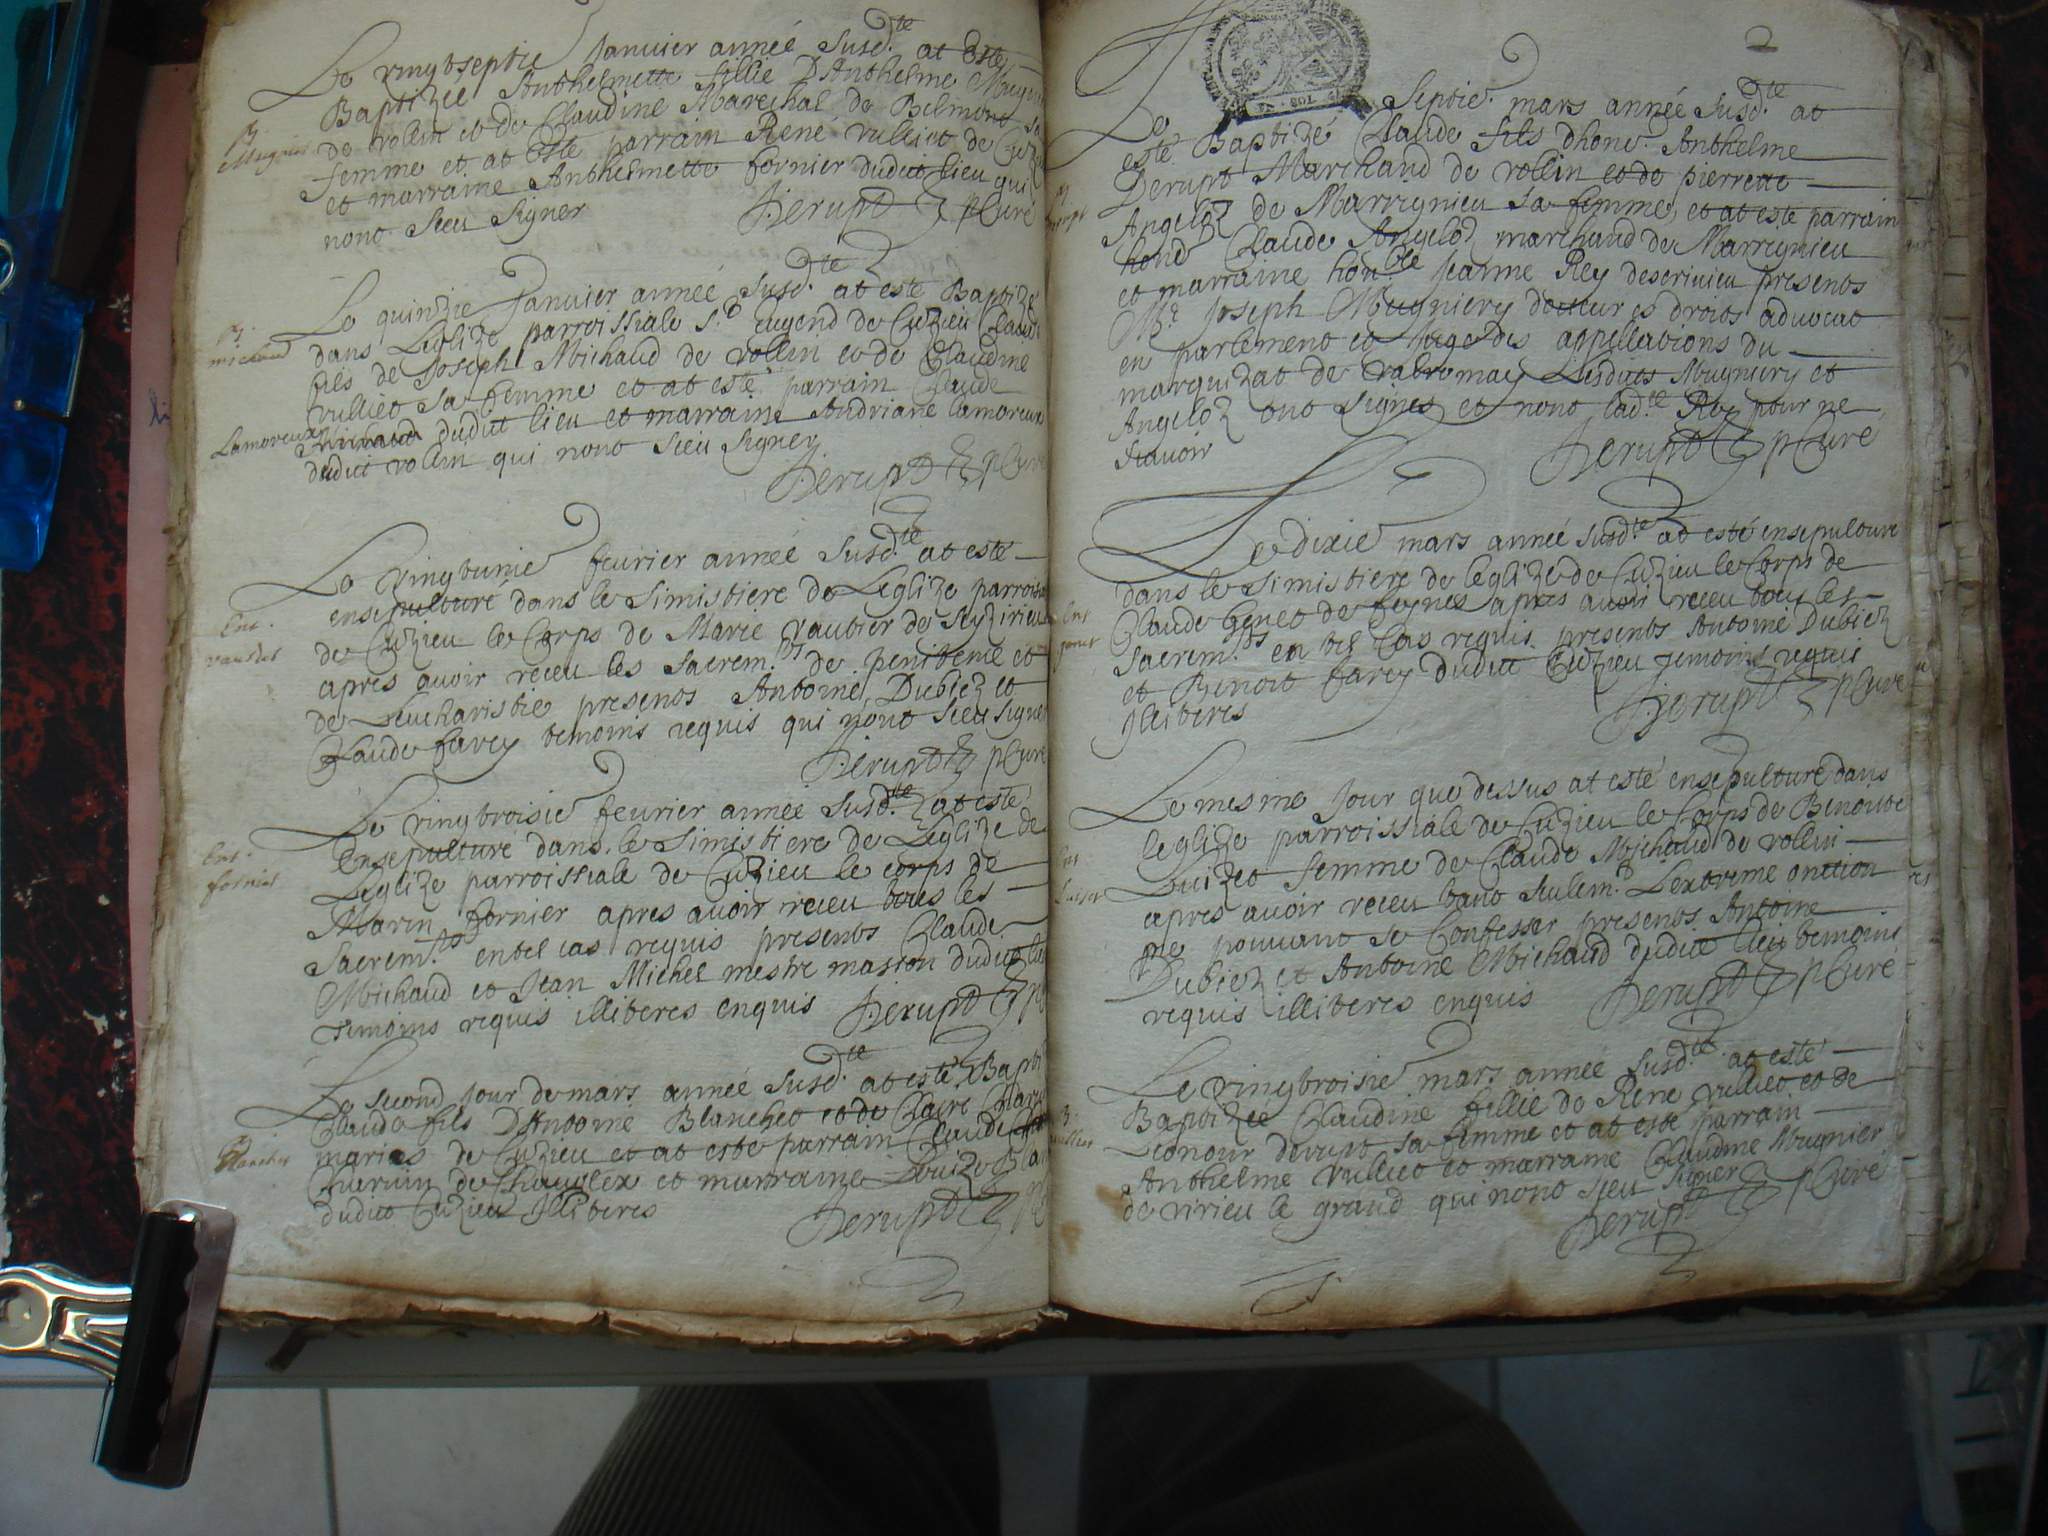 Le vingtseptie Janvier année susd.te at esté
Baptizée Anthelmette fillie D'Anthelme Mugni
de rollin et de Claudine Marechal de Belmont sa
femme et at esté parrain René vulliet de Cuz
et marraine Anthelmette fornier dudict lieu qui
nont sceu signer Derupt p Curé
B.
Mugnier
Le quinzie Janvier année susd.te at esté Baptizé
dans Leglize parroissiale s.t eugend de Cuzieu Claude
fils de Joseph Michaud de rollin et de Claudine
vulliet sa femme et at esté parrain Claude
Michaud dudict lieu et marraine Andriane Lamoreux
dudict rollin qui nont sceu signer
Derupt p Curé
B.
michaud
Lamoreux
Le vingtunie fevrier année susd.te at esté
ensepulturé dans le simistiere de Leglize parroiss
de Cuzieu le Corps de Marie vautier de Seyzirieu
apres avoir receu les sacrem.ts de penitence et
de Leucharistie presents Antoine Dubiez et
Claude farcy temoins requis qui nont sceu signer
Derupt p Curé
Ent.
Le vingtroisie fevrier année susd.te at esté
Ensepulturé dans le simistiere de Leglize de
Leglize parroissiale de Cuzieu le corps de
Marin fornier apres avoir receu tous les
sacrem.ts en tel cas requis presents Claude
Michaud et Jean Michel mestre masson dudict lieu
temoins requis illiteres enquis Derupt p
Ent.
fornier
Le second Jour de mars année susd.te at esté Bapti
Claude fils D'Antoine Blanchet et de Claire
maries de Cuzieu et at esté parrain Claude
de et marraine Louize
dudict Cuzieu Illiteres Derupt p
B.
Blanchet
2
Le Septie. mars année susd.te at
esté Baptizé Claude fils d'hono. Anthelme
Derupt Marchand de rollin et de pierrette
Angeloz de Marrignieu sa femme, et at esté parrain
hono Claude Angeloz marchand de Marrignieu
et marraine hon.ble Jeanne Rey descrivieu presents
M.e Joseph Mugniery docteur es droits advocat
en parlement et Juge des appellations du
marquizat de valromay Lesdicts Mugniery et
Angeloz ont signes et nont lad.te Rey pour ne
scavoir Derupt p Curé
Le dixie mars année susd.te at esté ensepulturé
dans le simistiere de leglize de Cuzieu le Corps de
Claude Genet de apres avoir receu tous les
sacrem.ts en tel Cas requis presents Antoine Dubiez
et Benoit farcy dudict Cuzieu temoins requis
Illiteres Derupt p Curé
Ent
genet
Le mesme Jour que dessus at esté ensepulturé dans
leglize parroissiale de Cuzieu le Corps de Benoitte
Luizet femme de Claude Michaud de rollin
apres avoir receu tant seulem.t Lextreme onction
ne pouvant se Confesser presents Antoine
Dubiez et Antoine Michaud dudict lieu temoins
requis illiteres enquis Derupt p Curé
Le vingtroisie mars année susd.te at esté
Baptizée Claudine fillie de Rene vulliet et de
Leonour derupt sa femme et at esté parrain
Anthelme vulliet et marraine Claudine Mugnier
de virieu le grand qui nont sceu signer
Derupt p Curé
B.